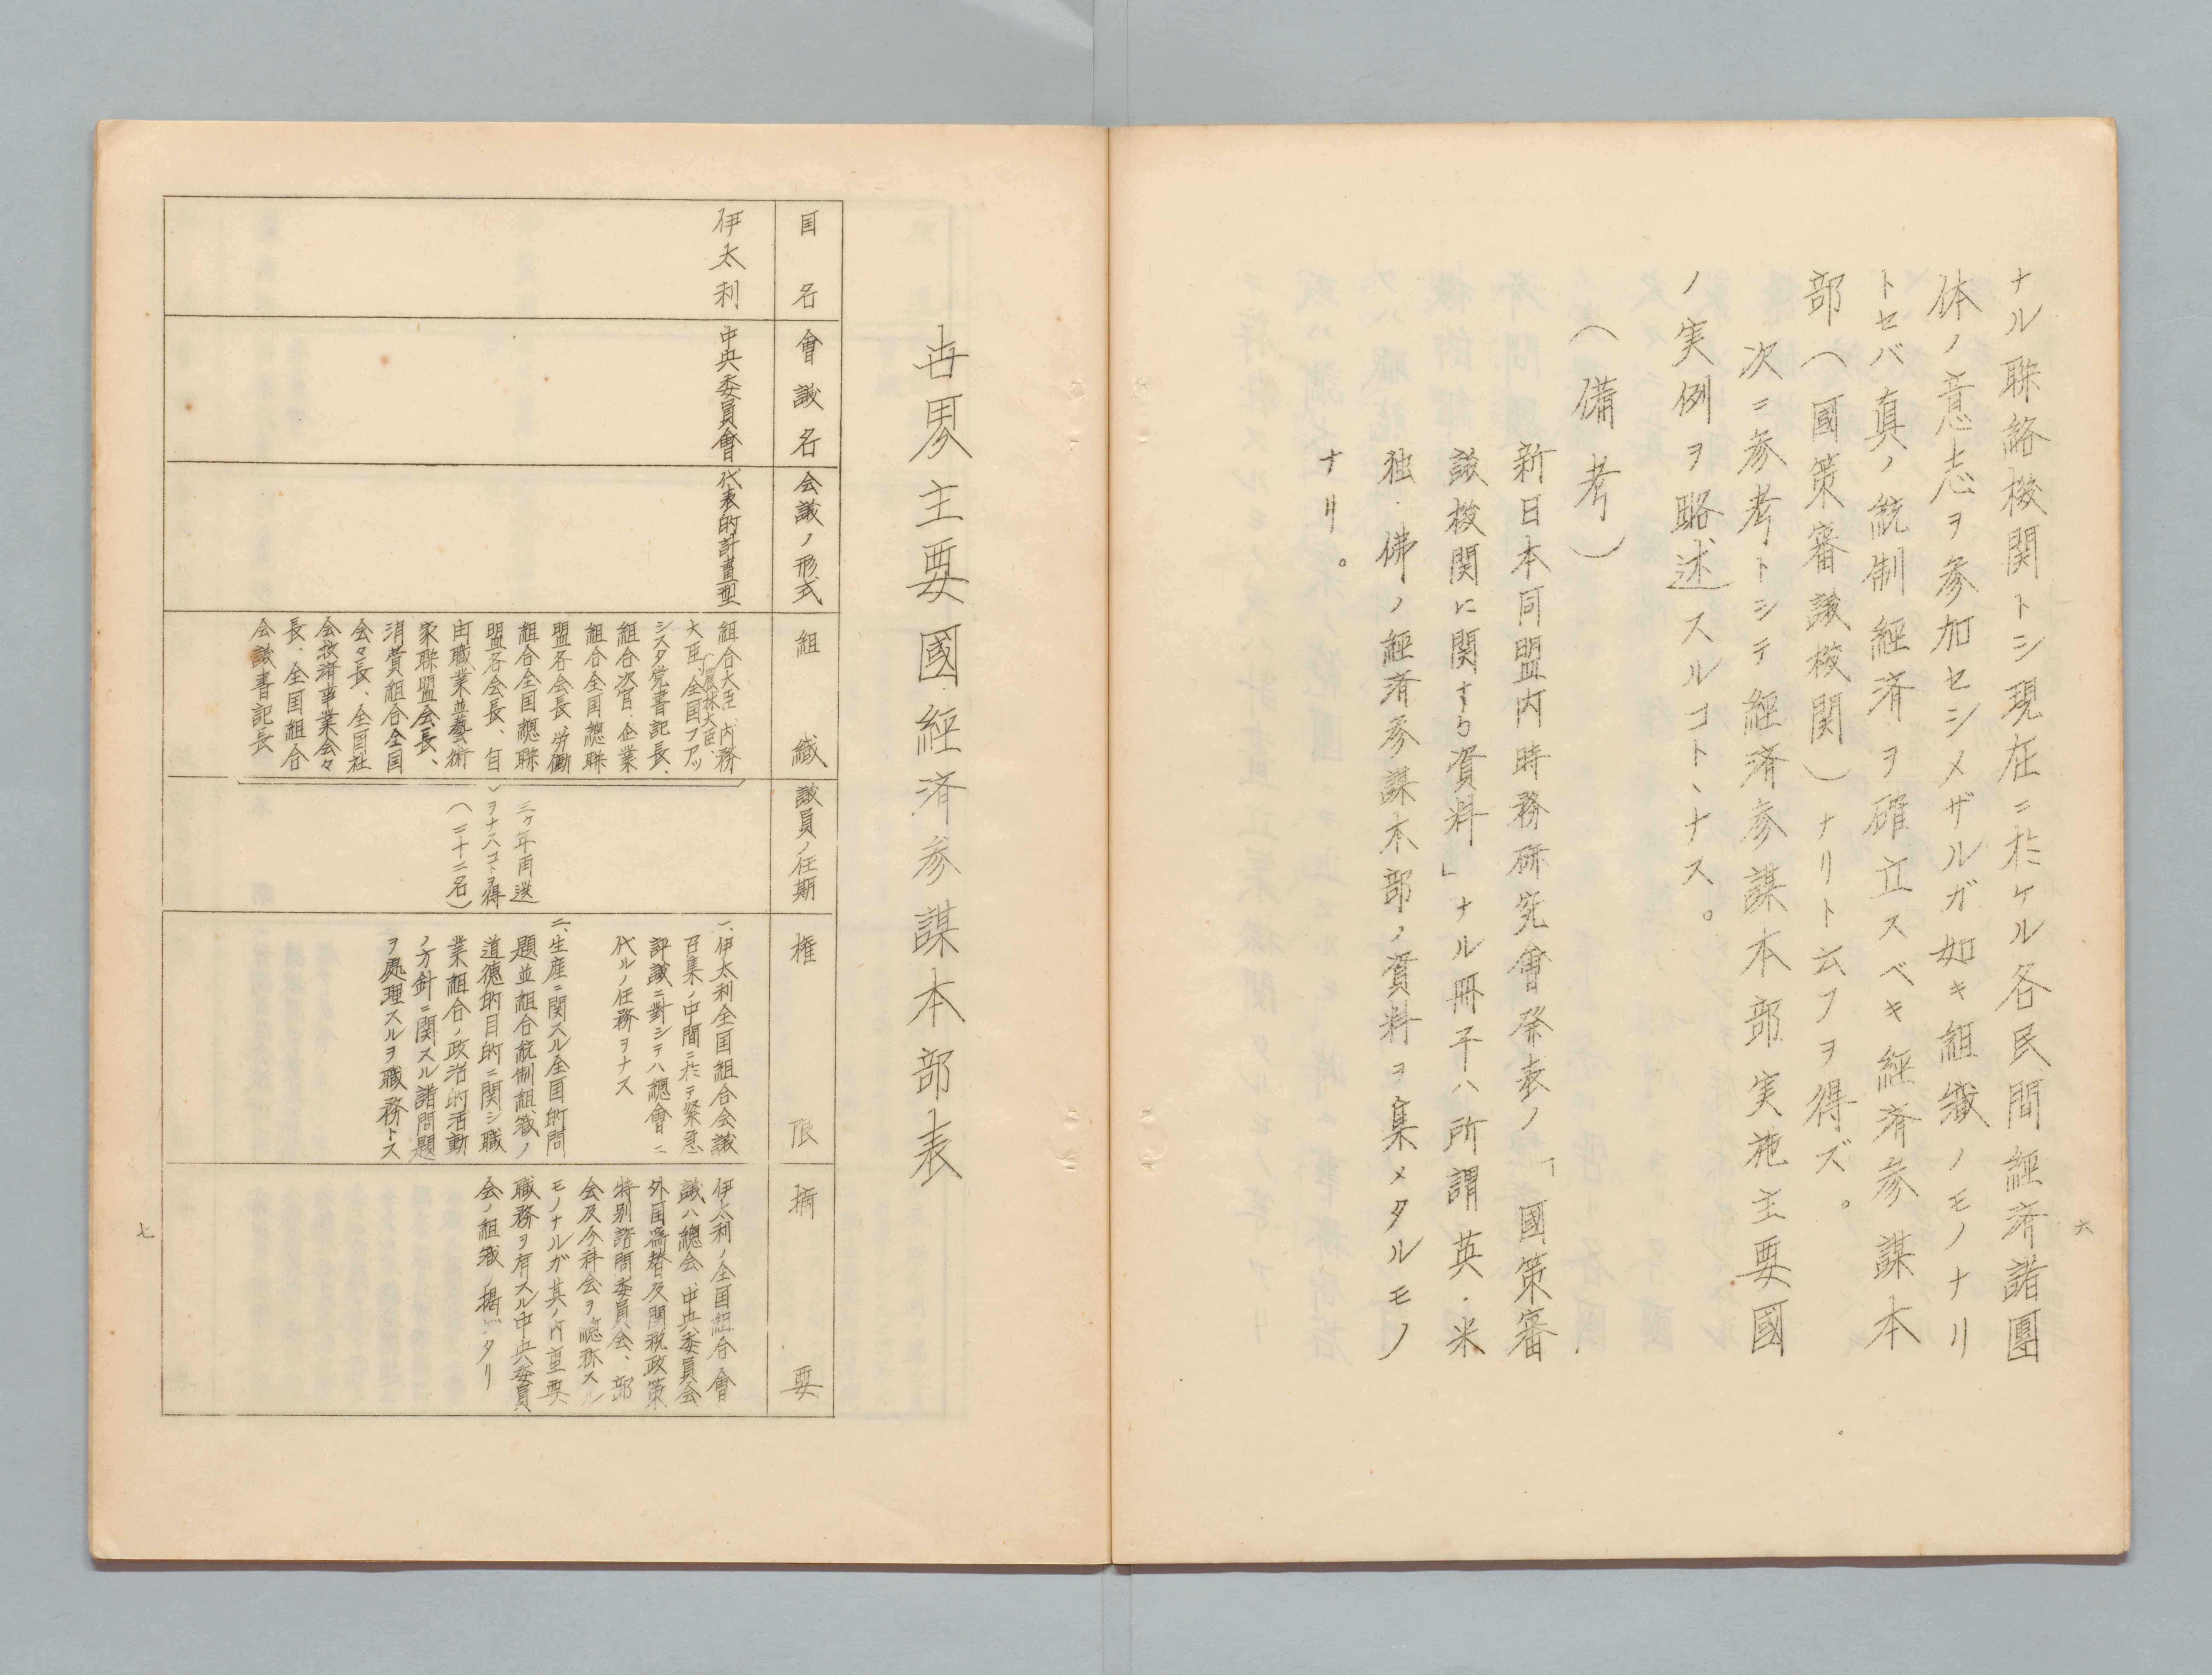 六
ナル聯絡機関トシ現在ニ於ケル各民間経済諸團
体ノ意志ヲ参加セシメザルガ如キ組織ノモノナリ
トセバ真ノ統制経済ヲ確立スベキ経済参謀本
部（國策審議機関）ナリト云フヲ得ズ。
次ニ参考トシテ経済参謀本部実施主要國
ノ実例ヲ略述スルコトヽナス。
（備考）
新日本同盟内時務研究會発表ノ「國策審
議機関に関する資料」ナル冊子ハ所謂英・米
独・佛ノ経済参謀本部ノ資料ヲ集メタルモノ
ナリ。
世界主要國経済参謀本部表
国名
會議名
会議ノ形式
組織
議員ノ任期
権限
摘要
伊太利
中央委員會
代表的計畫型
組合大臣、内務
大臣、農林大臣、全国フアッ
シスタ党書記長、
組合次官、企業
組合全国總聯
盟各会長、労働
組合全国總聯
盟各会長、自
由職業並藝術
家聯盟会長、
消費組合全国
会々長、全国社
会救済事業会々
長、全国組合
会議書記長
三ケ年再選
ヲナスコトヲ得
（二十二名）
一、伊太利全国組合会議
召集ノ中間ニ於テ緊急
評議ニ對シテハ總會ニ
代ルノ任務ヲナス
二、生産ニ関スル全国的問
題並組合統制組織ノ
道徳的目的ニ関シ職
業組合ノ政治的活動
ノ方針ニ関スル諸問題
ヲ処理スルヲ職務トス
伊太利ノ全国組合會
議ハ總会、中央委員会
外国為替及関税政策
特別諮問委員会、部
会及分科会ヲ總称スル
モノナルガ其ノ内重要
職務ヲ有スル中央委員
会ノ組織ノ掲ゲタリ
七